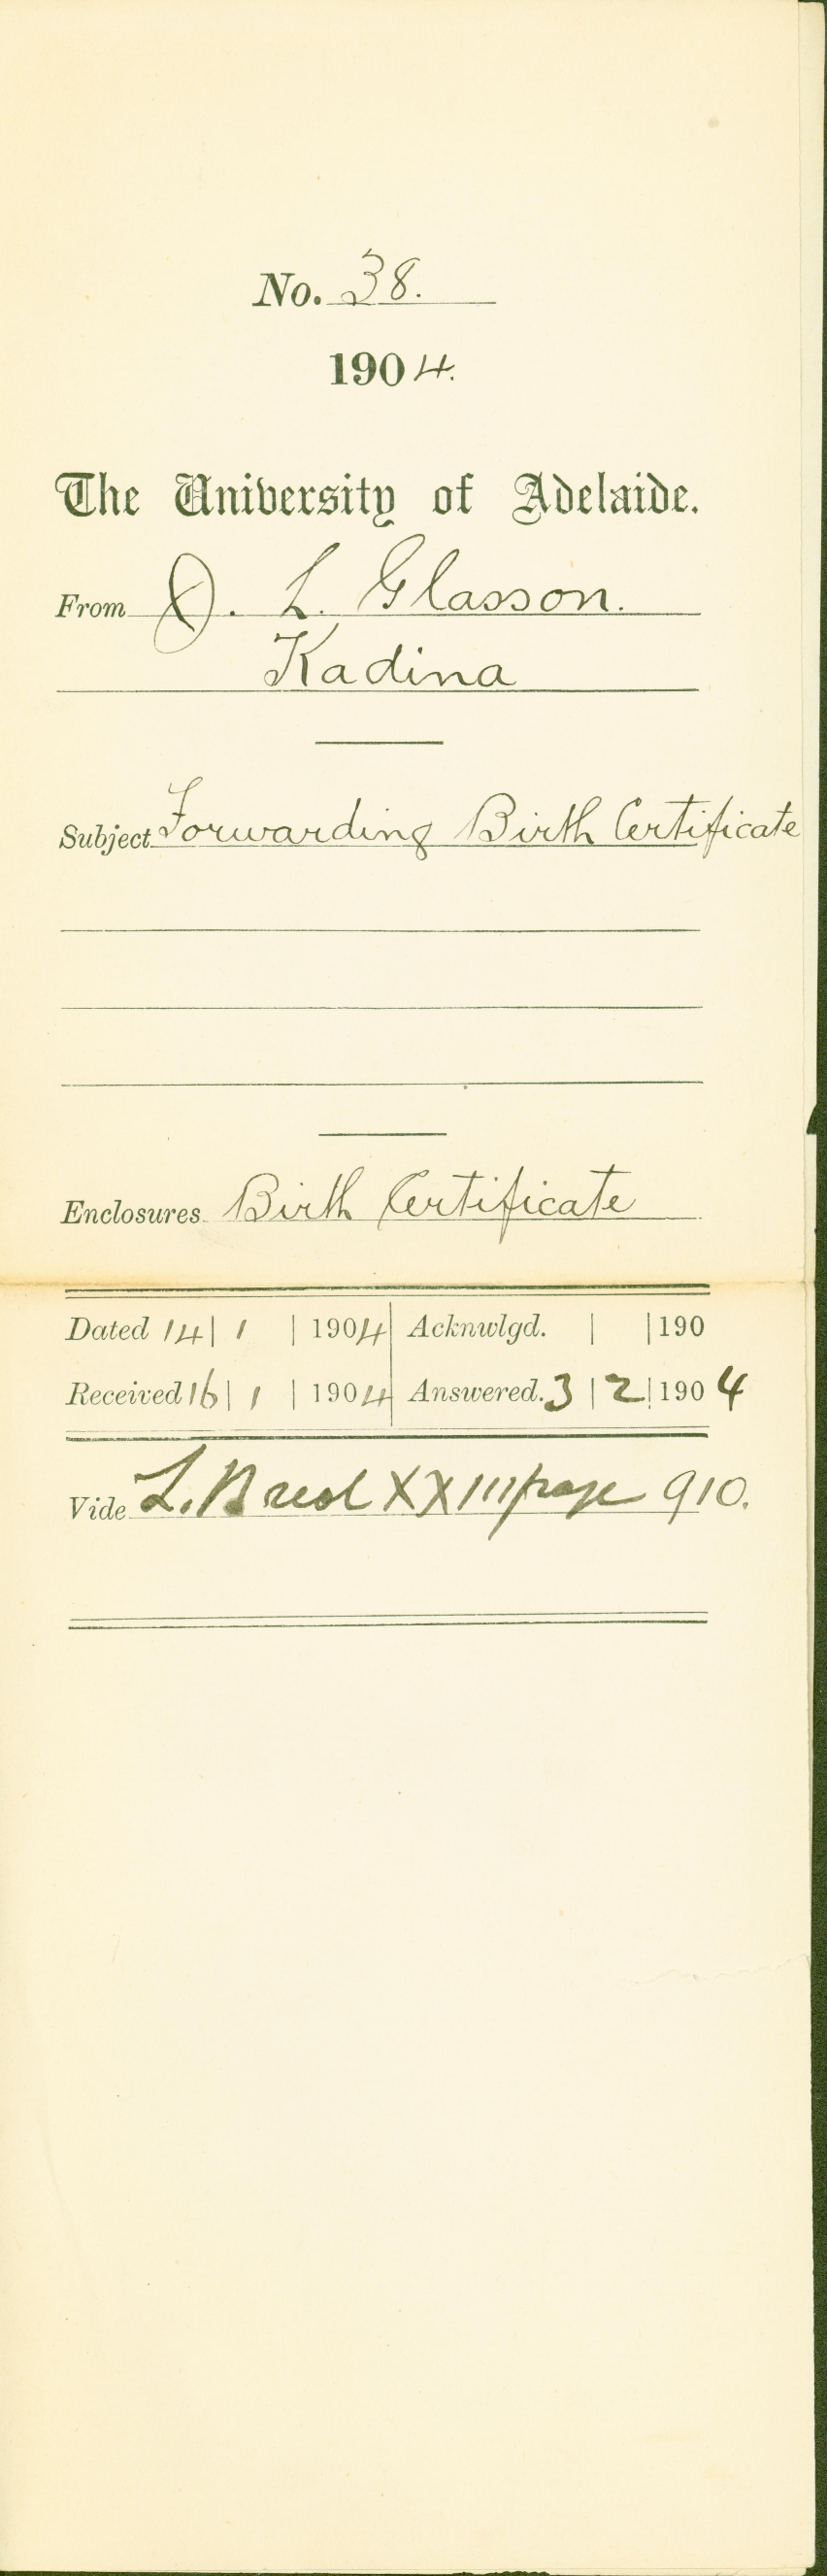 No. 38.
1904.
The University of Adelaide.
From J. L. Glasson.
Kadina
Subject Forwarding Birth Certificate
Enclosures Birth Certificate
Dated 14 | 1 | 1904 Acknwlgd. | | 190
Received 16 | 1 | 1904 Answered. 3 | 2 | 1904
Vide L. XXIII page 910.